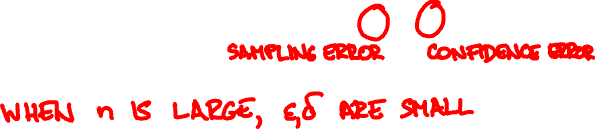 SAMPLING ERROR CONFIDENCE ERROR
WHEN n IS LARGE, ε,δ ARE SMALL